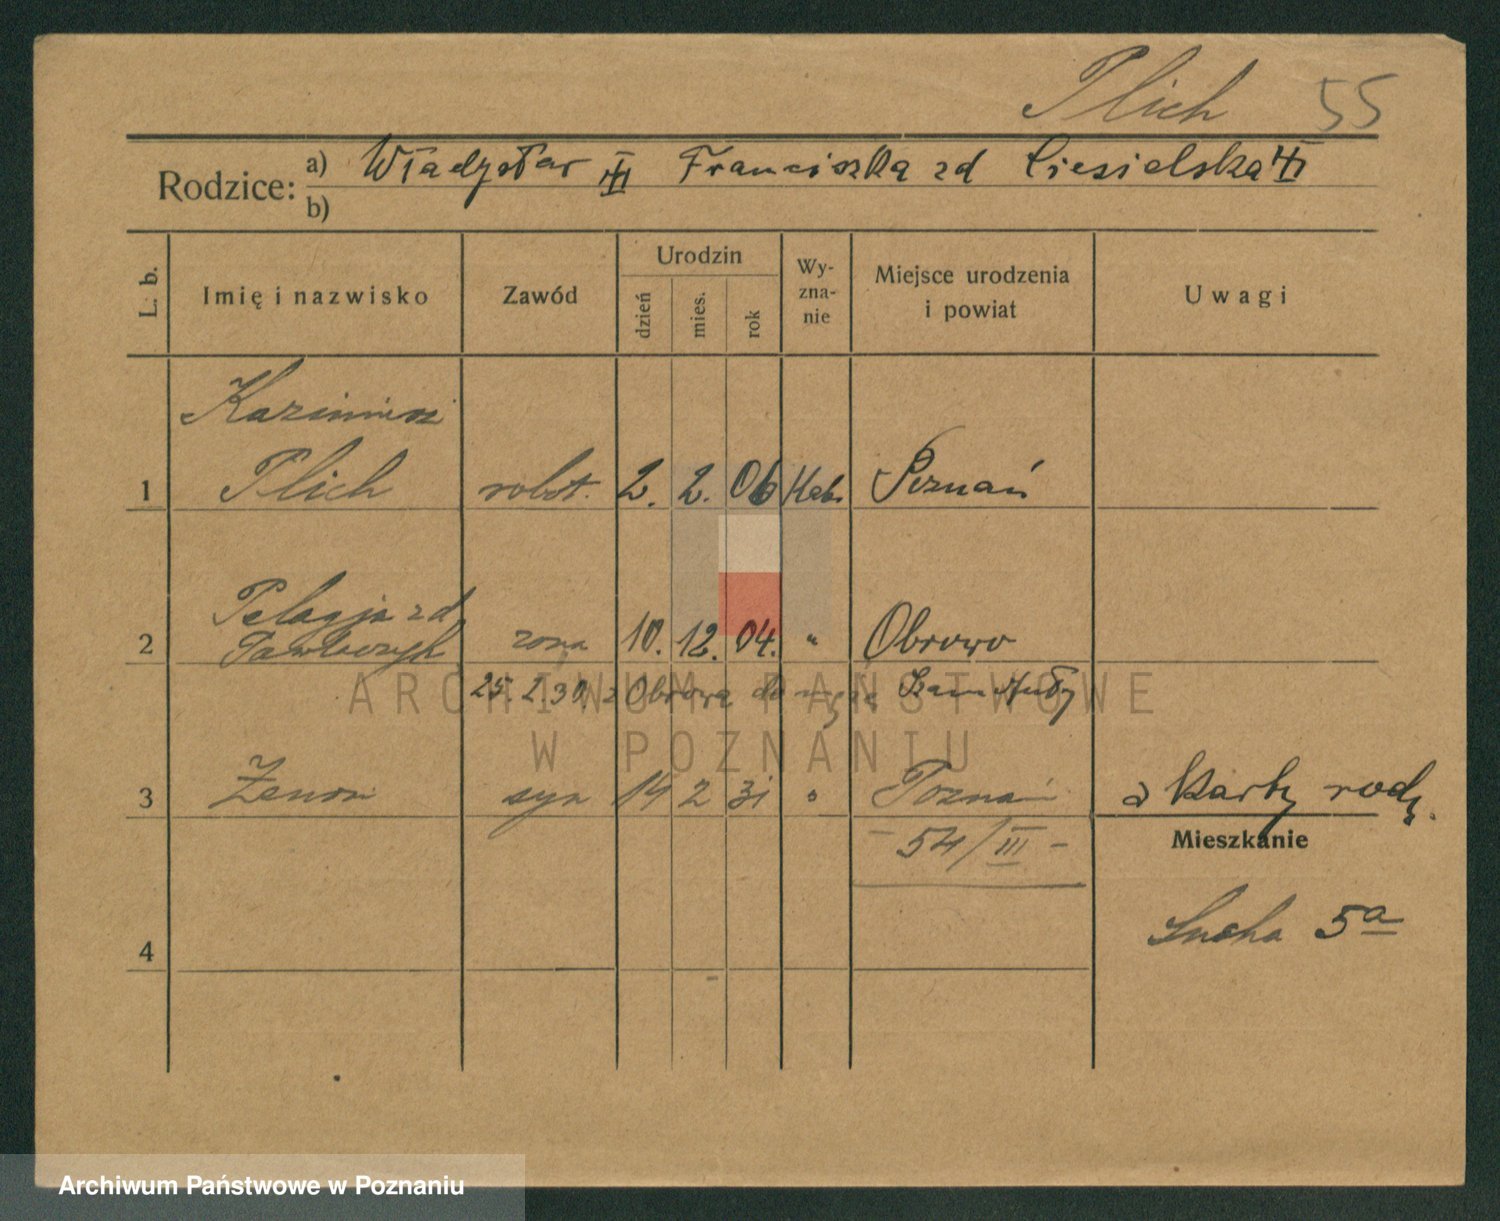 Plich 55
Rodzice: a) Władysław III Franciszka zd Ciesielska III
b)
L. b. Imię i nazwisko Zawód Urodzin dzień mies. rok Wy-zna-nie Miejsce urodzenia i powiat Uwagi
Kazimierz
1 Plich robot. 2. 2. 06 Kat. Poznań
Pelagja zd.
2 żona 10. 12. 04. " Obrowo
25. 2. 30 z Obrowa do męża Szamotuły
3 Zenon syn 14 2 31 " Poznań z Karty rodz.
- 54/III -
Mieszkanie
4 Sucha 5a
ARCHIWUM PAŃSTWOWE
W POZNANIU
Archiwum Państwowe w Poznaniu